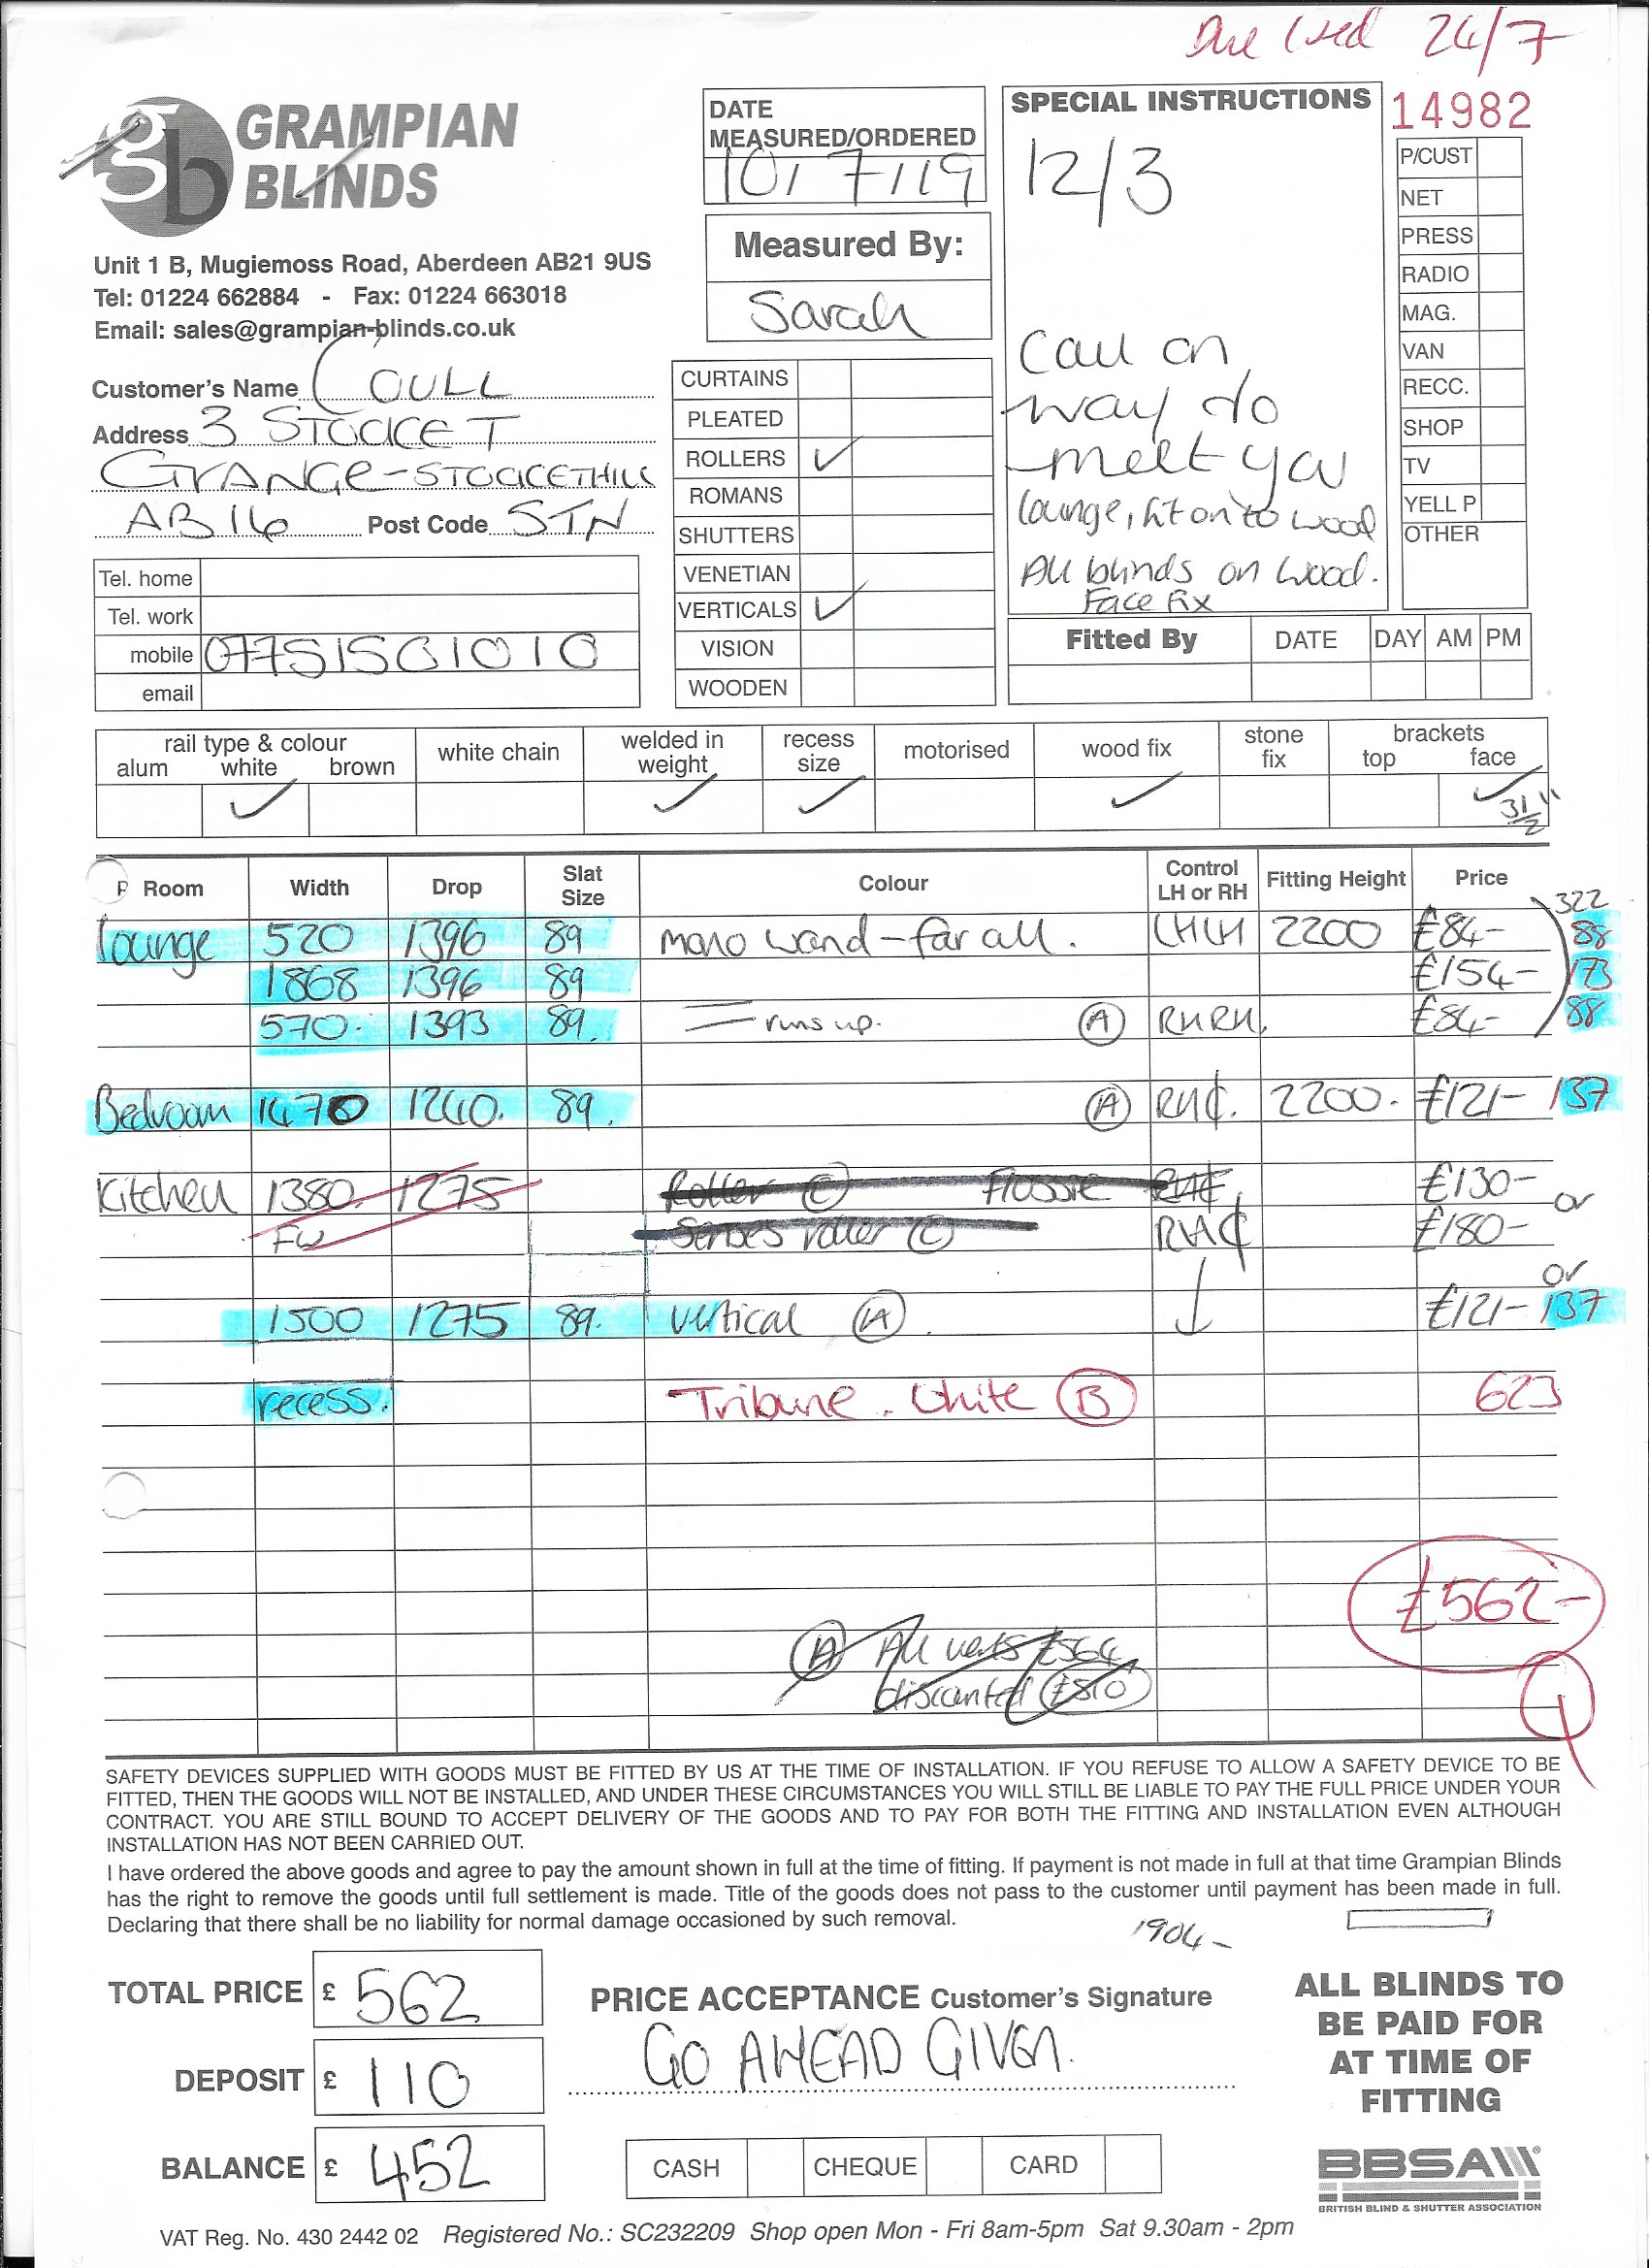 Due Wed 24/7
GRAMPIAN
BLINDS
Unit 1 B, Mugiemoss Road, Aberdeen AB21 9US
Tel: 01224 662884 - Fax: 01224 663018
Email: sales@grampian-blinds.co.uk
DATE
MEASURED/ORDERED
10/7/19
Measured By:
Sarah
SPECIAL INSTRUCTIONS
12/3
Call on
way to
meet you
lounge, fit on to wood
All blinds on wood.
Face fix
14982
P/CUST
NET
PRESS
RADIO
MAG.
VAN
RECC.
SHOP
TV
YELL P
OTHER
Customer's Name COULL
Address 3 STOCKET
GRANGE-STOCKETHILL
AB16 Post Code 5TN
Tel. home
Tel. work
mobile 07751501010
email
CURTAINS
PLEATED
ROLLERS ✓
ROMANS
SHUTTERS
VENETIAN
VERTICALS ✓
VISION
WOODEN
Fitted By DATE DAY AM PM
rail type & colour white chain welded in weight recess size motorised wood fix stone fix brackets
alum white brown top face
✓ ✓ ✓ ✓ ✓
3 1/2"
Room Width Drop Slat Size Colour Control LH or RH Fitting Height Price
322
lounge 520 1396 89 mono wand - for all. LHLH 2200 £84- 88
1868 1396 89 £154- 173
570. 1393 89. runs up. A RHRH. £84- 88
Bedroom 1470 1240. 89. A RH¢. 2200. £121- 137
Kitchen 1380 1275 Roller C Flossie RH¢ £130- or
FW Senses roller C RH¢ £180-
or
1500 1275 89. vertical A £121- 137
recess. Tribune. White B 623
£562-
A All verts £564
discounted £510
SAFETY DEVICES SUPPLIED WITH GOODS MUST BE FITTED BY US AT THE TIME OF INSTALLATION. IF YOU REFUSE TO ALLOW A SAFETY DEVICE TO BE
FITTED, THEN THE GOODS WILL NOT BE INSTALLED, AND UNDER THESE CIRCUMSTANCES YOU WILL STILL BE LIABLE TO PAY THE FULL PRICE UNDER YOUR
CONTRACT. YOU ARE STILL BOUND TO ACCEPT DELIVERY OF THE GOODS AND TO PAY FOR BOTH THE FITTING AND INSTALLATION EVEN ALTHOUGH
INSTALLATION HAS NOT BEEN CARRIED OUT.
I have ordered the above goods and agree to pay the amount shown in full at the time of fitting. If payment is not made in full at that time Grampian Blinds
has the right to remove the goods until full settlement is made. Title of the goods does not pass to the customer until payment has been made in full.
Declaring that there shall be no liability for normal damage occasioned by such removal.
1904-
TOTAL PRICE £ 562
DEPOSIT £ 110
BALANCE £ 452
PRICE ACCEPTANCE Customer's Signature
GO AHEAD GIVEN.
CASH CHEQUE CARD
ALL BLINDS TO
BE PAID FOR
AT TIME OF
FITTING
BBSA
BRITISH BLIND & SHUTTER ASSOCIATION
VAT Reg. No. 430 2442 02 Registered No.: SC232209 Shop open Mon - Fri 8am-5pm Sat 9.30am - 2pm